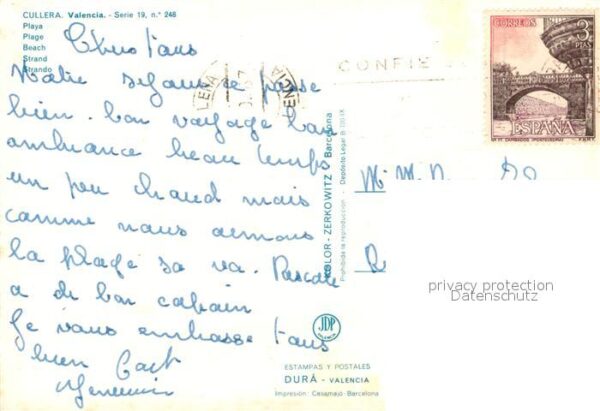 CULLERA. Valencia. - Serie 19, n.º 248
Playa
Plage
Beach
Strand
Strando
Chers tous
Notre séjour se passe
bien. bon voyage bon
ambiance beau temps
un peu chaud mais
comme nous aimons
la plage sa va. Pascale
a de bon copain
Je vous embrasse tous
bien
KOLOR-ZERKOWITZ Barcelona
Prohibida la reproducción - Depósito Legal B
JDP
VALENCIA
ESTAMPAS Y POSTALES
DURÁ - VALENCIA
Impresión: Cesamajó-Barcelona
VALENCIA
CONFIE
CORREOS
3
PTAS
ESPAÑA
CAMBADOS (PONTEVEDRA)
M. M
privacy protection
Datenschutz